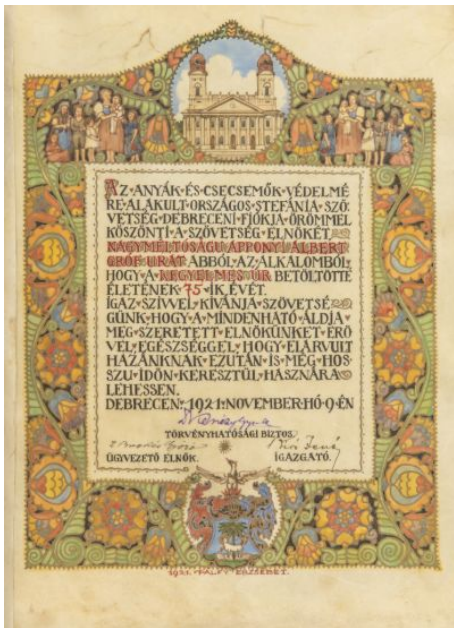 AZ·ANYÁK·ÉS·CSECSEMŐK·VÉDELMÉ
RE·ALAKULT·ORSZÁGOS·STEFÁNIA·SZÖ
VETSÉG·DEBRECENI·FIÓKJA·ÖRÖMMEL
KÖSZÖNTI·A·SZÖVETSÉG·ELNÖKÉT
NAGYMÉLTÓSÁGU·APPONYI·ALBERT
GRÓF·URAT·ABBÓL·AZ·ALKALOMBÓL
HOGY·A·KEGYELMES·ÚR·BETÖLTÖTTE
ÉLETÉNEK·75·IK·ÉVÉT.
IGAZ·SZÍVVEL·KÍVÁNJA·SZÖVETSÉ
GÜNK·HOGY·A·MINDENHATÓ·ÁLDJA
MEG·SZERETETT·ELNÖKÜNKET·ERŐ
VEL·EGÉSZSÉGGEL·HOGY·ELÁRVULT
HAZÁNKNAK·EZUTÁN·IS·MÉG·HOS
SZU·IDŐN·KERESZTÜL·HASZNÁRA
LEHESSEN.
DEBRECEN·1921·NOVEMBER·HÓ·9·ÉN
TÖRVÉNYHATÓSÁGI BIZTOS.
ÜGYVEZETŐ ELNÖK. IGAZGATÓ.
1921. PÁLFY ERZSÉBET.